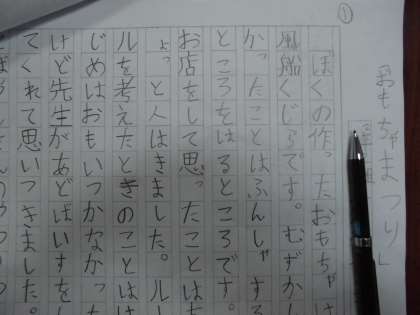 ①
「おもちゃまつり」
ぼくの作ったおもちゃは
風船くじらです。むずかし
かったことはふんしゃする
ところをはるところです。
お店をして思ったことは
ょっと人はきました。ルー
ルを考えたときのことはは
じめはおもいつかなかった
けど先生があどばいすをし
てくれて思いつきました。